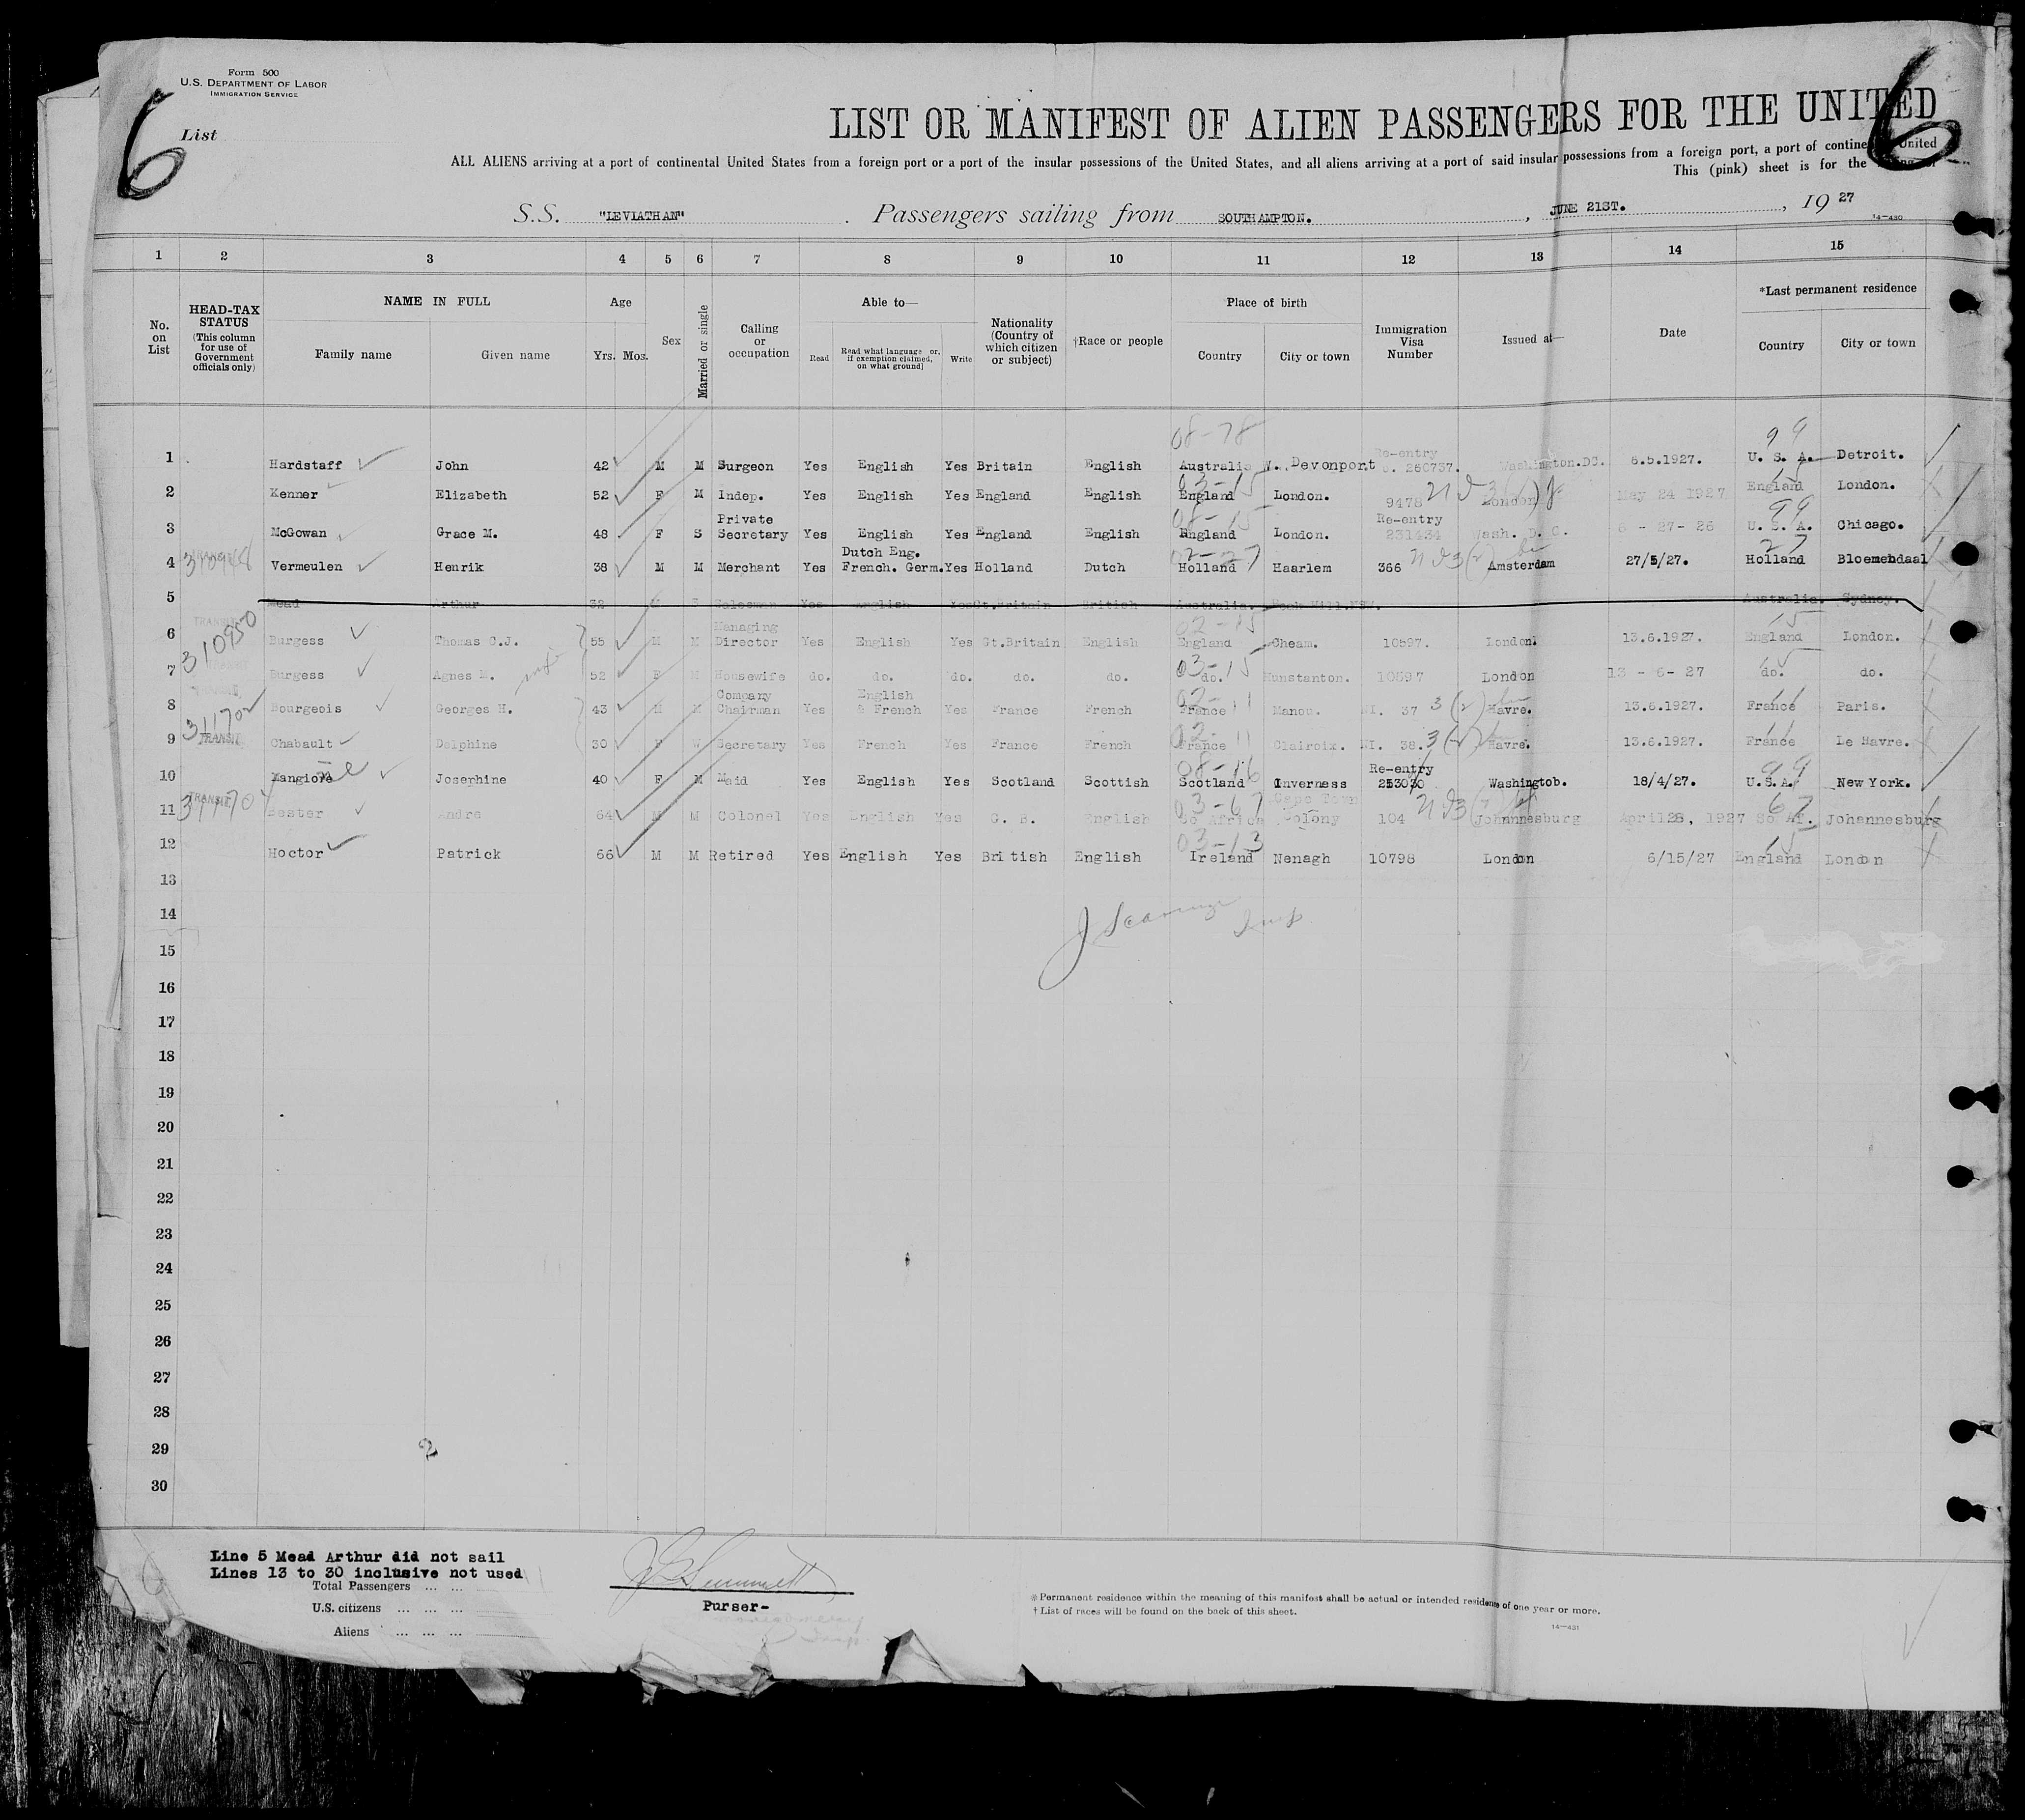 Form 500
U.S. DEPARTMENT OF LABOR
IMMIGRATION SERVICE
6
6
List
LIST OR MANIFEST OF ALIEN PASSENGERS FOR THE UNITED
ALL ALIENS arriving at a port of continental United States from a foreign port or a port of the insular possessions of the United States, and all aliens arriving at a port of said insular possessions from a foreign port, a port of United
This (pink) sheet is for the
S.S. "LEVIATHAN" . Passengers sailing from SOUTHAMPTON. , JUNE 21ST. , 19 27
14-430
1 2 3 4 5 6 7 8 9 10 11 12 13 14 15
No. on List
HEAD-TAX STATUS (This column for use of Government officials only)
NAME IN FULL
Family name Given name
Age
Yrs. Mos.
Sex
Married or single
Calling or occupation
Able to—
Read
Read what language or, if exemption claimed, on what ground
Write
Nationality (Country of which citizen or subject)
†Race or people
Place of birth
Country City or town
Immigration Visa Number
Issued at—
Date
*Last permanent residence
Country City or town
08-78 99
1 Hardstaff John 42 M M Surgeon Yes English Yes Britain English Australia W. Devonport Re-entry 260737. Washington.DC. 6.5.1927. U. S. A. Detroit.
03-15 15
2 Kenner Elizabeth 52 F M Indep. Yes English Yes England English England London. 9478 London May 24 1927 England London.
08-15 99
3 McGowan Grace M. 48 F S Private Secretary Yes English Yes England English England London. Re-entry 231434 Wash. D. C. 8 - 27- 26 U. S. A. Chicago.
TRANSIT 02-27 27
4 Vermeulen Henrik 38 M M Merchant Yes Dutch Eng. French. Germ. Yes Holland Dutch Holland Haarlem 366 Amsterdam 27/5/27. Holland Bloemendaal
5 Mead Arthur 32 M S Salesman Yes English Yes Gt.Britain British Australia. Australia. Sydney.
TRANSIT 310950 02-15 15
6 Burgess Thomas C.J. 55 M M Managing Director Yes English Yes Gt.Britain English England Cheam. 10597. London. 13.6.1927. England London.
TRANSIT 03-15
7 Burgess Agnes M. 52 F M Housewife do. do. do. do. do. do. Hunstanton. 10597 London 13 - 6- 27 do. do.
311702 02-11 11
8 Bourgeois Georges H. 43 M M Company Chairman Yes English & French Yes France French France Manou. NI. 37 3(2) Havre. 13.6.1927. France Paris.
TRANSIT 02-11 11
9 Chabault Delphine 30 F W Secretary Yes French Yes France French France Clairoix. NI. 38. 3(2) Havre. 13.6.1927. France Le Havre.
08-16 99
10 Mangiore Josephine 40 F M Maid Yes English Yes Scotland Scottish Scotland Inverness Re-entry Washingtob. 18/4/27. U.S.A. New York.
TRANSIT 03-67 67
11 Andre 64 M M Colonel Yes English Yes G. B. English So Africa Cape Town Colony 104 Johannesburg April28, 1927 So Af. Johannesburg
03-13 15
12 Hoctor Patrick 66 M M Retired Yes English Yes British English Ireland Nenagh 10798 London 6/15/27 England London
13
14
15
16
17
18
19
20
21
22
23
24
25
26
27
28
29
30
Line 5 Mead Arthur did not sail
Lines 13 to 30 inclusive not used
Total Passengers ... ...
U.S. citizens ... ... ...
Aliens ... ... ...
Purser-
*Permanent residence within the meaning of this manifest shall be actual or intended residence of one year or more.
†List of races will be found on the back of this sheet.
14-431